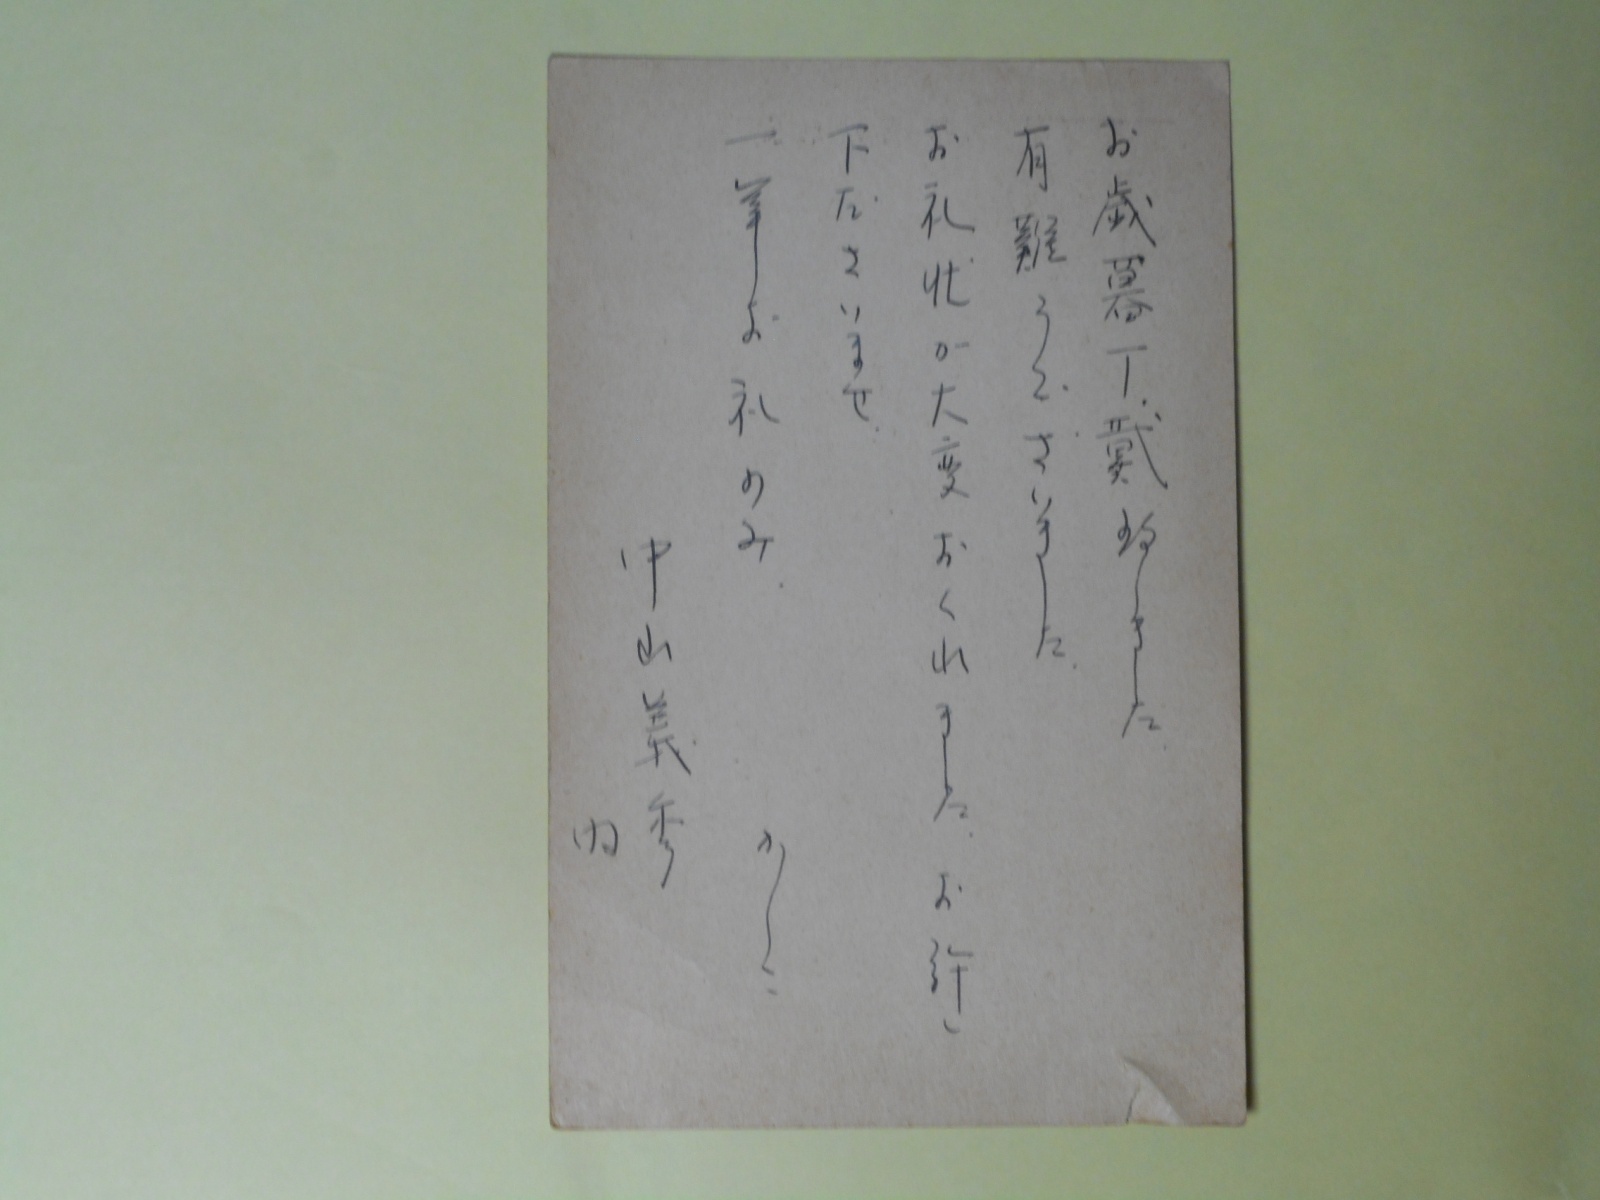 お歳暮丁戴致しました
有難うございました
お礼状が大変おくれました、お許し
下ださいませ、
一筆お礼のみ、
かしこ
中山義秀
内